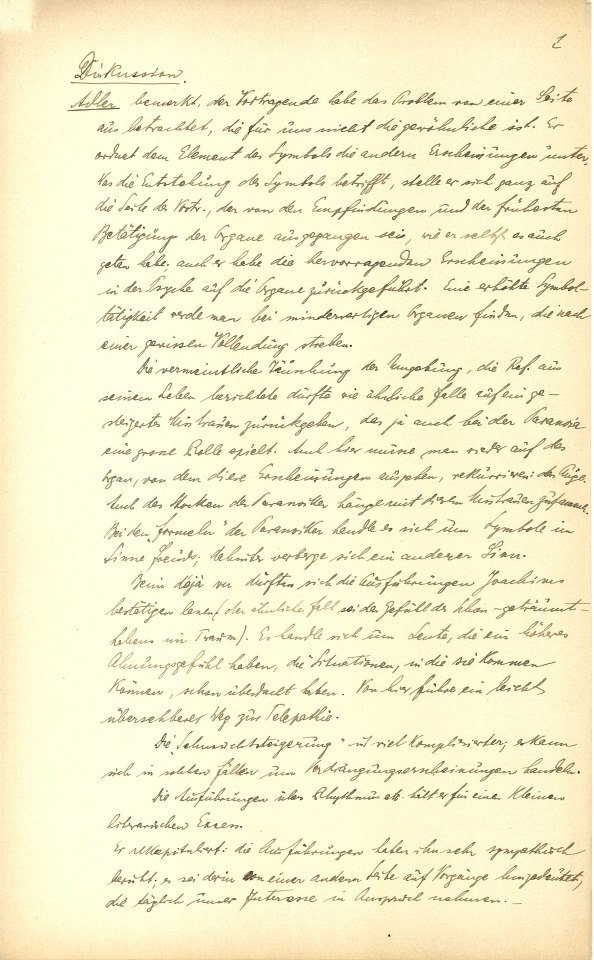 1
Diskussion.
Adler bemerkt, der Vortragende habe das Problem von einer Seite
aus betrachtet, die für uns nicht die gewöhnliche ist. Er
ordnet dem Element des Symbols die andern Erscheinungen unter.
Was die Entstehung des Symbols betrifft, stelle er sich ganz auf
die Seite des Vortr., der von den Empfindungen und der frühesten
Betätigung der Organe ausgegangen sei, wie er selbst es auch
getan habe; auch er habe die hervorragenden Erscheinungen
in der Psyche auf die Organe zurückgeführt. Eine erhöhte Symbol-
tätigkeit werde man bei minderwertigen Organen finden, die nach
einer gewissen Vollendung streben.
Die vermeintliche Täuschung der Umgebung, die Ref. aus
seinem Leben berichtete dürfte wie ähnliche Fälle auf ein ge-
steigertes Misstrauen zurückgehen, das ja auch bei der Paranoia
eine grosse Rolle spielt. Auch hier müsse man wieder auf das
Organ, von dem diese Erscheinungen ausgehen, rekurrieren: das Auge.
Auch das Stocken der Paranoiker hänge mit diesem Misstrauen zusammen.
Bei den „Formeln" der Paranoiker handle es sich um Symbole im
Sinne Freuds; dahinter verberge sich ein anderer Sinn.
Beim déjà vu dürften sich die Ausführungen Joachims
bestätigen lassen (der ähnliche Fall sei das Gefühl des Schon-geträumt-
habens im Traum). Es handle sich um Leute, die ein höheres
Ahnungsgefühl haben, die Situationen, in die sie kommen
können, schon überdacht haben. Von hier führe ein leicht
übersehbarer Weg zur Telepathie.
Die „Sehnsuchtsteigerung" ist viel komplizierter; es kann
sich in solchen Fällen um Verdrängungserscheinungen handeln.
Die Ausführungen über Rhythmus etc. hält er für einen kleinen
literarischen Exzess.
Er rekapituliert: die Ausführungen haben ihn sehr sympathisch
berührt; es sei darin von einer andern Seite auf Vorgänge hingedeutet,
die täglich unser Interesse in Anspruch nehmen. –